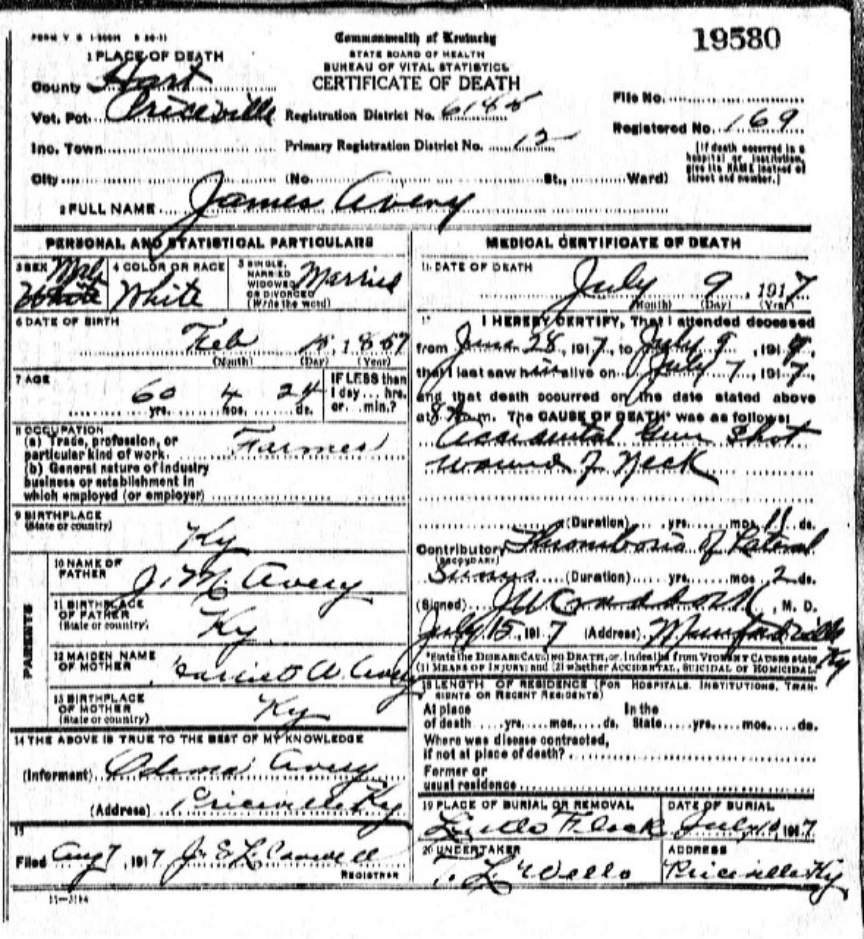 FORM V S 1-500M 5 20-11
Commonwealth of Kentucky
19580
STATE BOARD OF HEALTH
BUREAU OF VITAL STATISTICS
CERTIFICATE OF DEATH
1 PLACE OF DEATH
County Hart
Vot. Pct. Priceville Registration District No. 6185
File No.
Registered No. 169
Inc. Town Primary Registration District No. 12
[If death occurred in a hospital or institution, give its NAME instead of street and number.]
City (No. St., Ward)
2 FULL NAME James Avery
PERSONAL AND STATISTICAL PARTICULARS
3 SEX Male White
4 COLOR OR RACE White
5 SINGLE, MARRIED WIDOWED OR DIVORCED (Write the word) Married
6 DATE OF BIRTH
Feb 15, 1857
(Month) (Day) (Year)
7 AGE
60 yrs. 4 mos. 24 ds.
IF LESS than 1 day ... hrs. or ... min.?
8 OCCUPATION
(a) Trade, profession, or particular kind of work Farmer
(b) General nature of industry business or establishment in which employed (or employer)
9 BIRTHPLACE
(State or country) Ky
PARENTS
10 NAME OF FATHER J. M. Avery
11 BIRTHPLACE OF FATHER (State or country) Ky.
12 MAIDEN NAME OF MOTHER W. Avery
13 BIRTHPLACE OF MOTHER (State or country) Ky
14 THE ABOVE IS TRUE TO THE BEST OF MY KNOWLEDGE
(Informant) Avery
(Address) Priceville Ky
15
Filed Aug 7, 1917 J. E. L.
REGISTRAR
11-3184
MEDICAL CERTIFICATE OF DEATH
11. DATE OF DEATH
July 9, 1917
(Month) (Day) (Year)
17 I HEREBY CERTIFY, That I attended deceased
from June 28, 1917, to July 9, 1919,
that I last saw him alive on July 7, 1917,
and that death occurred on the date stated above
at 8 A. m. The CAUSE OF DEATH* was as follows:
Accidental Gun Shot
wound of Neck
(Duration) yrs. mos. 11 ds.
Contributory Thrombosis of Lateral
(SECONDARY)
Sinus (Duration) yrs. mos. 2 ds.
(Signed) J W Craddock, M. D.
July 15, 1917 (Address) Munfordville Ky
*State the DISEASE CAUSING DEATH, or, in deaths from VIOLENT CAUSES state
(1) MEANS OF INJURY; and (2) whether ACCIDENTAL, SUICIDAL OR HOMICIDAL.
18 LENGTH OF RESIDENCE (FOR HOSPITALS, INSTITUTIONS, TRANSIENTS OR RECENT RESIDENTS)
At place of death yrs. mos. ds. In the State yrs. mos. ds.
Where was disease contracted,
if not at place of death?
Former or
usual residence
19 PLACE OF BURIAL OR REMOVAL
DATE OF BURIAL
July 10, 1917
20 UNDERTAKER
ADDRESS
T. L. Priceville Ky